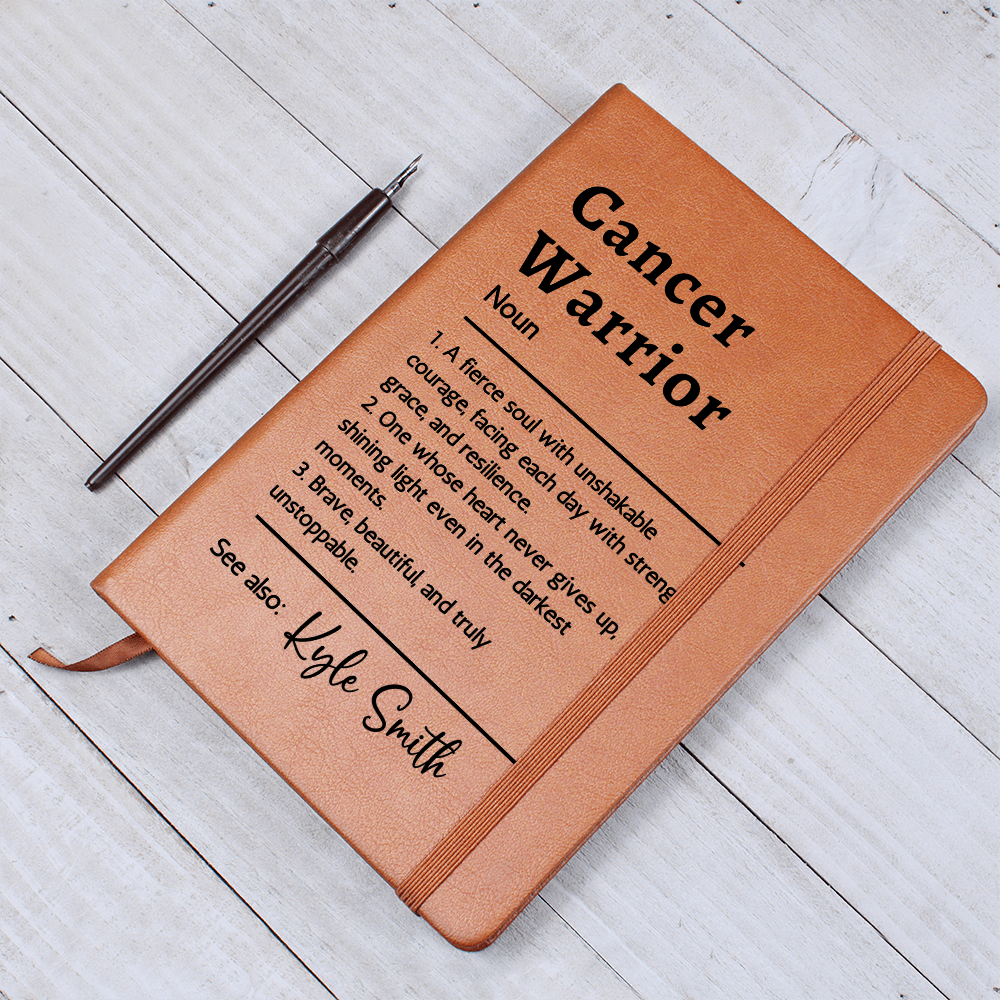 Cancer
Warrior
Noun
1. A fierce soul with unshakable
courage, facing each day with streng
grace, and resilience.
2. One whose heart never gives up,
shining light even in the darkest
moments.
3. Brave, beautiful, and truly
unstoppable.
See also: Kyle Smith